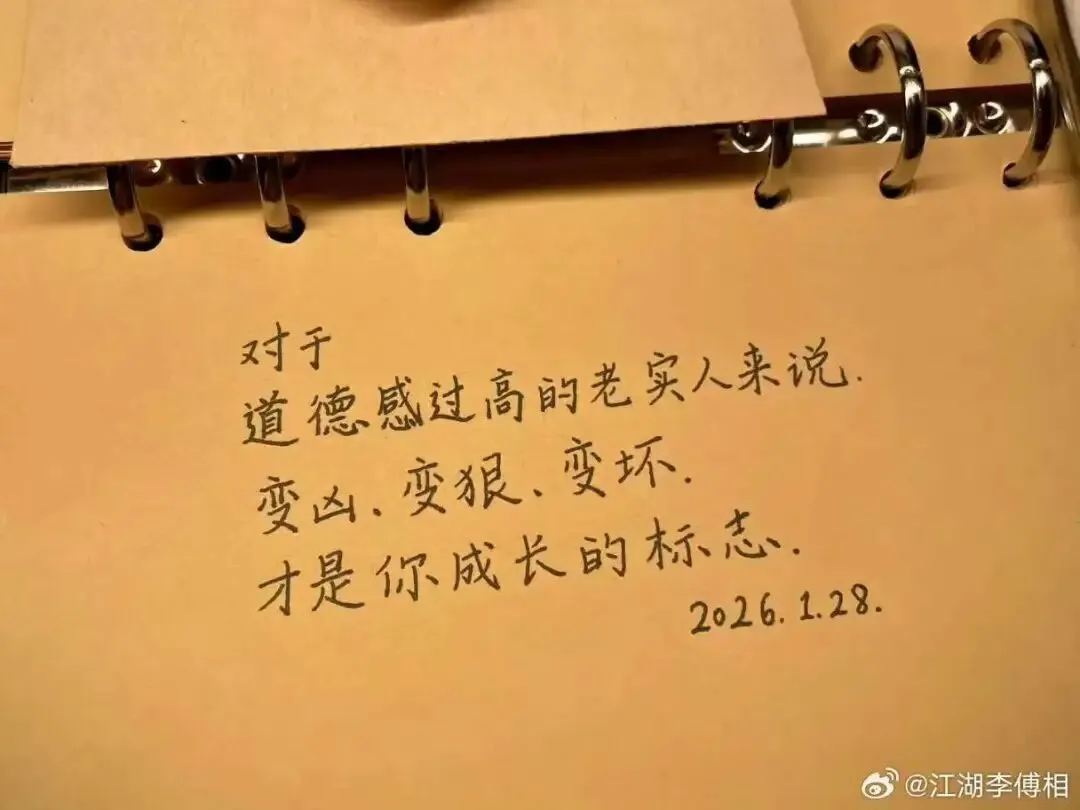 对于
道德感过高的老实人来说.
变凶、变狠、变坏.
才是你成长的标志.
2026.1.28.
@江湖李傅相